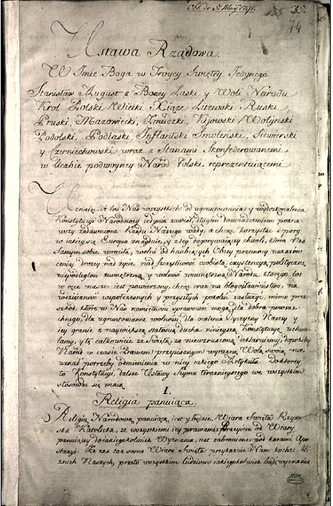 Ustawa Rządowa.
W Imie Boga w Troycy Swiętey Jedynego.
Stanisław August z Bożey Łaski y Woli Narodu
Krol Polski Wielki Xiąże Litewski Ruski
Pruski Mazowiecki, Zmudzki, Kijowski Wołyński
Podolski, Podlaski Inflantski Smoleński, Siewierski
y Czerniechowski wraz z Stanami Skonfederowanemi
w liczbie podwoyney Narod Polski reprezentuiącemi
Uznaiąc, iż los Nas wszystkich od ugruntowania y wydoskonalenia
Konstytucyi Narodowey iedynie zawisł, długim doswiadczeniem poznawszy
zadawnione Rządu Naszego wady, a chcąc korzystać z pory
w iakiey się Europa znayduie, y z tey
wolni od
drożey nad życie, nad szczęśliwość osobistą, exystencyą polityczną
niepodległość zewnętrzną, y wolność wewnętrzną Narodu, ktorego los
w ręce nasze iest powierzony, chcąc oraz na błogosławieństwo, na
wdzięczność wspołczesnych y przyszłych pokoleń zasłużyć, mimo przeszkod,
ktore w Nas namiętności sprawować mogą, dla dobra powszechnego,
dla ugruntowania wolności, dla ocalenia Oyczyzny Naszey y
iey granic z naywiększą stałością ducha, ninieyszą Konstytucyę uchwalamy,
y tę całkowicie za świętą, za niewzruszoną deklaruiemy, dopokiby
Narod w czasie prawem przepisanym wyraźną Wolą swoią nie
uznał potrzeby odmienienia w niey iakiego Artykułu. Do ktorey
to Konstytucyi dalsze Ustawy Seymu teraznieyszego we wszystkim
stosować się maią.
I
Religia panuiąca
Religią Narodową panuiącą iest y będzie Wiara Swięta Rzymska
Katolicka, ze wszystkiemi iey prawami. Przeyście od Wiary
panuiącey do iakiegokolwiek Wyznania, iest zabronione pod karami Apostazyi.
Ze zas ta sama Wiara Swięta przykazuie Nam kochać bliźnich
Naszych, przeto wszystkim ludziom iakiegokolwiek bądź wyznania